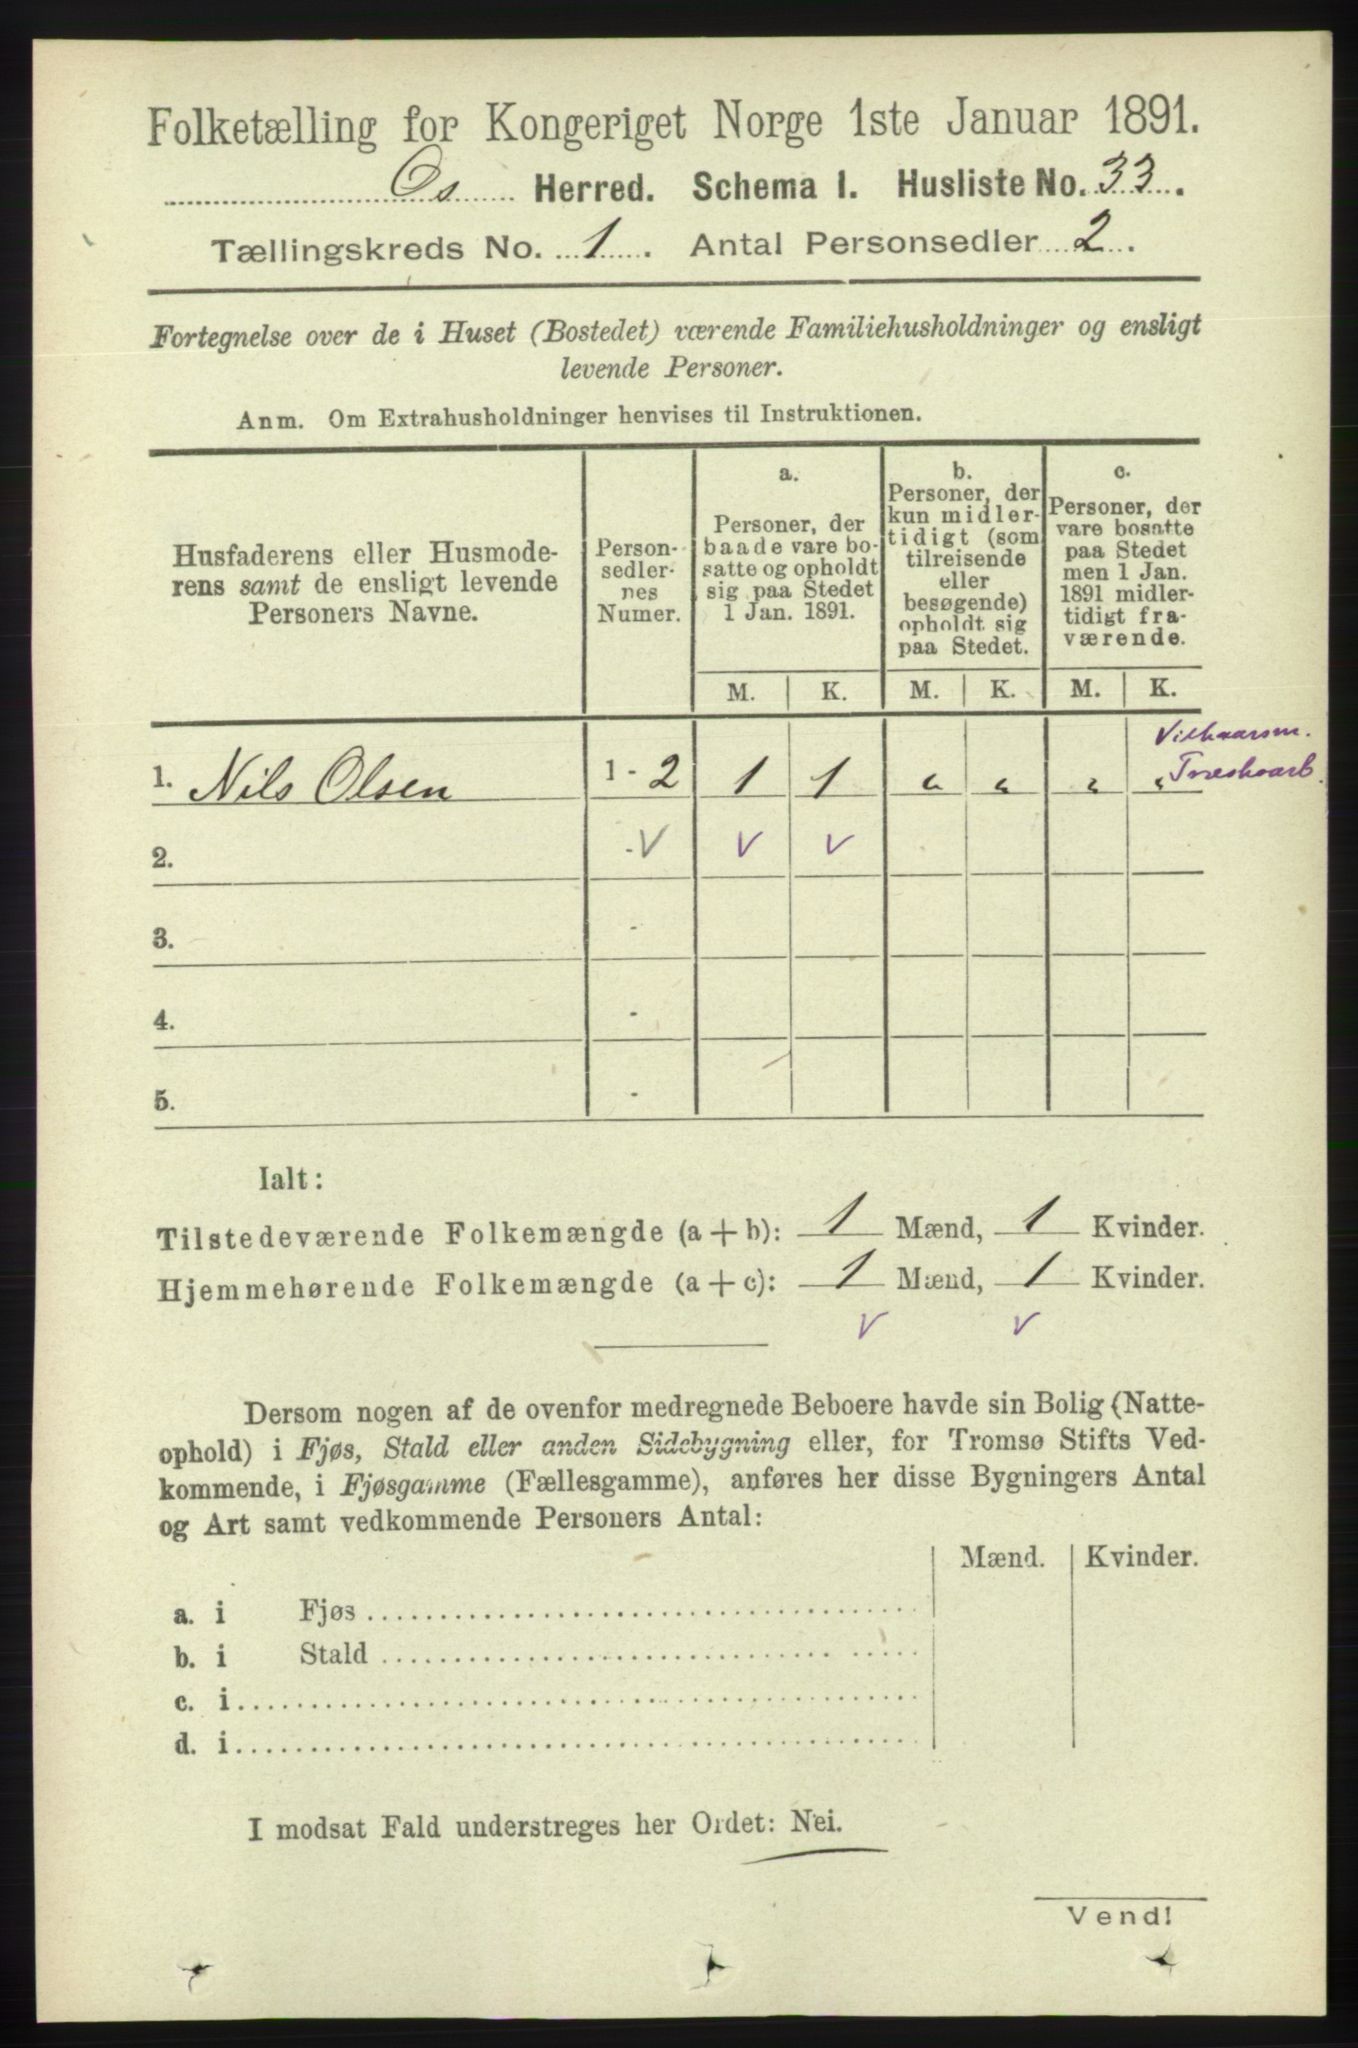 Folketælling for Kongeriget Norge 1ste Januar 1891.
Os Herred. Schema I. Husliste No. 33.
Tællingskreds No. 1. Antal Personsedler 2.
Fortegnelse over de i Huset (Bostedet) værende Familiehusholdninger og ensligt
levende Personer.
Anm. Om Extrahusholdninger henvises til Instruktionen.
Husfaderens eller Husmode-
rens samt de ensligt levende
Personers Navne.
Person-
sedler-
nes
Numer.
a.
Personer, der
baade vare bo-
satte og opholdt
sig paa Stedet
1 Jan. 1891.
b.
Personer, der
kun midler-
tidigt (som
tilreisende
eller
besøgende)
opholdt sig
paa Stedet.
c.
Personer, der
vare bosatte
paa Stedet
men 1 Jan.
1891 midler-
tidigt fra-
værende.
M. K. M. K. M. K.
1. Nils Olsen 1 - 2 1 1 " " " "
2. - V V V
3. -
4. -
5. -
Ialt:
Tilstedeværende Folkemængde (a + b): 1 Mænd, 1 Kvinder.
Hjemmehørende Folkemængde (a + c): 1 Mænd, 1 Kvinder.
V V
Dersom nogen af de ovenfor medregnede Beboere havde sin Bolig (Natte-
ophold) i Fjøs, Stald eller anden Sidebygning eller, for Tromsø Stifts Ved-
kommende, i Fjøsgamme (Fællesgamme), anføres her disse Bygningers Antal
og Art samt vedkommende Personers Antal:
Mænd. Kvinder.
a. i Fjøs
b. i Stald
c. i
d. i
I modsat Fald understreges her Ordet: Nei.
Vend!